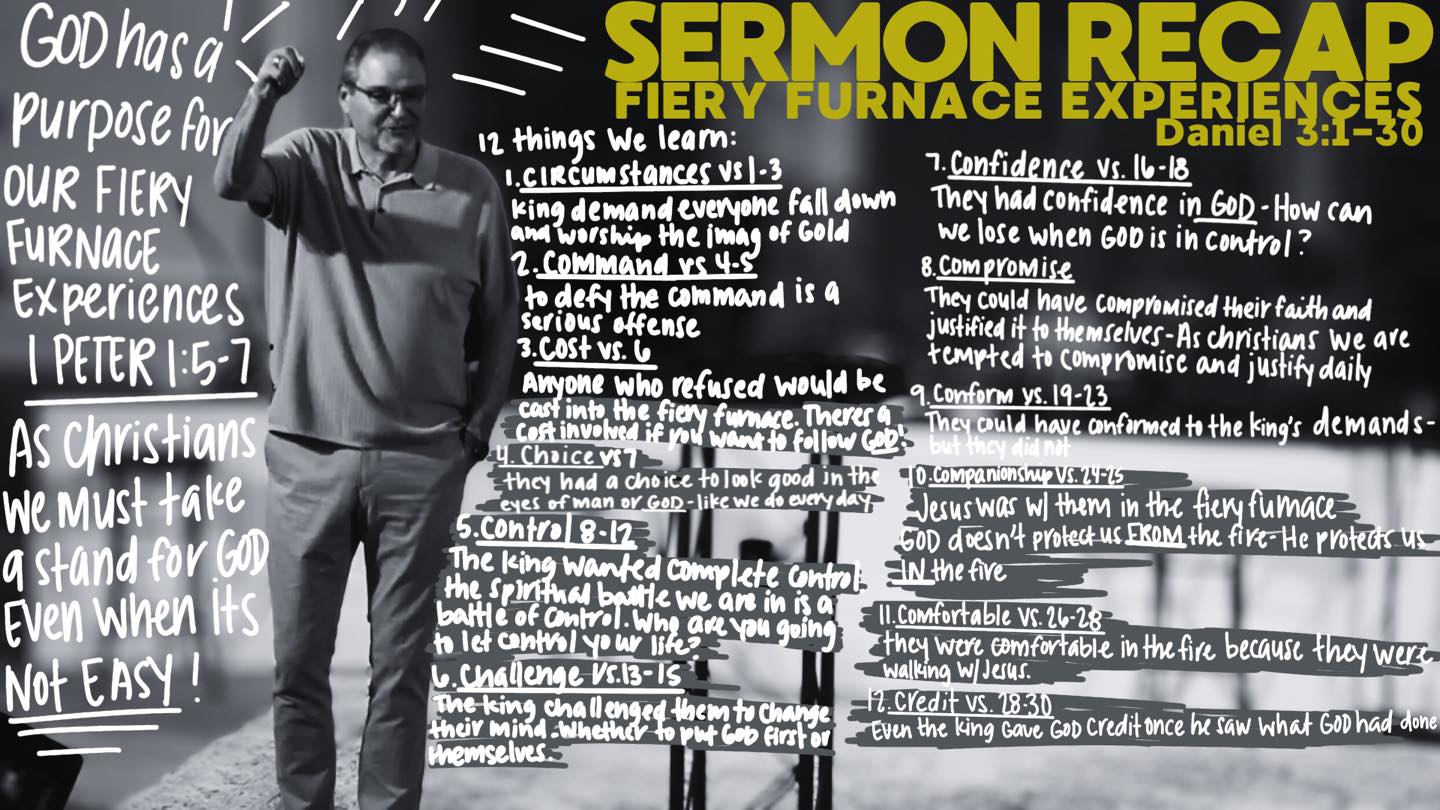 GOD has a
purpose for
OUR FIERY
FURNACE
Experiences
1 PETER 1:5-7
As Christians
we must take
a stand for GOD
Even when its
NOT EASY!
SERMON RECAP
FIERY FURNACE EXPERIENCES
Daniel 3:1-30
12 things we learn:
1. CIRCUMSTANCES vs 1-3
King demand everyone fall down
and worship the imag of Gold
2. COMMAND vs 4-5
to defy the command is a
serious offense
3. COST vs. 6
Anyone who refused would be
cast into the fiery furnace. Theres a
cost involved if you want to follow GOD!
4. Choice vs 7
they had a choice to look good in the
eyes of man or GOD - like we do every day
5. Control 8-12
The king wanted complete control.
the spiritual battle we are in is a
battle of control. Who are you going
to let control your life?
6. Challenge vs. 13-15
The king challenged them to change
their mind - whether to put GOD first or
themselves.
7. Confidence vs. 16-18
They had confidence in GOD - How can
we lose when GOD is in control?
8. Compromise
They could have compromised their faith and
justified it to themselves - As christians we are
tempted to compromise and justify daily
9. Conform vs. 19-23
They could have conformed to the king's demands -
but they did not
10. Companionship vs. 24-25
Jesus was w/ them in the fiery furnace
GOD doesn't protect us FROM the fire - He protects us
IN the fire
11. Comfortable vs. 26-28
they were comfortable in the fire because they were
walking w/ Jesus.
12. Credit vs. 28-30
Even the king gave GOD credit once he saw what GOD had done